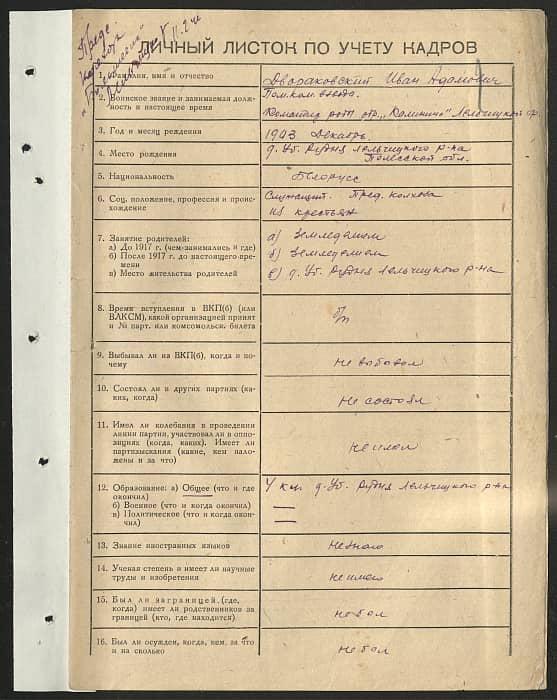 Предс.
колхоза
11.2 44
ЛИЧНЫЙ ЛИСТОК ПО УЧЕТУ КАДРОВ
1. Фамилия, имя и отчество
Двораковский Иван Адамович
2. Воинское звание и занимаемая долж-
ность в настоящее время
Пом. ком. взвода.
Командир роты отр. „Калинина" Лельчицкой бр.
3. Год и месяц рождения
Декабрь.
4. Место рождения
д. Уб. Рудня Лельчицкого р-на
Полесской обл.
5. Национальность
Белорусс
6. Соц. положение, профессия и проис-
хождение
Служащий. Пред. колхоза
из крестьян
7. Занятие родителей:
а) До 1917 г. (чем-занимались и где)
б) После 1917 г. до настоящего вре-
мени
в) Место жительства родителей
а) Земледелием
б) Земледелием
в) д. Уб. Рудня Лельчицкого р-на
8. Время вступления в ВКП(б) (или
ВЛКСМ), какой организацией принят
и № парт. или комсомольск. билета
б/п
9. Выбывал ли из ВКП(б), когда и по-
чему
не выбывал
10. Состоял ли в других партиях (ка-
ких, когда)
не состоял
11. Имел ли колебания в проведении
линии партии, участвовал ли в оппо-
зициях (когда, каких). Имеет ли
партвзыскания (какие, кем нало-
жены и за что)
не имел
12. Образование: а) Общее (что и где
окончил)
б) Военное (что и когда окончил)
в) Политическое (что и когда окон-
чил)
4 кл. д. Уб. Рудня Лельчицкого р-на
—
—
13. Знание иностранных языков
не знаю
14. Ученая степень и имеет ли научные
труды и изобретения
не имею
15. Был ли заграницей (где,
когда) имеет ли родственников за
границей (кто, где находится)
не был
16. Был ли осужден, когда, кем, за что
и на сколько
не был